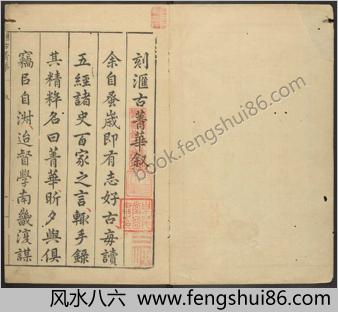 刻滙古菁華叙
余自蚤歲即有志好古每讀
五經諸史百家之言輒手錄
其精粹名曰菁華昕夕與俱
竊臣自淑迨督學南畿復謀
book.fengshui86.com
风水八六 www.fengshui86.com